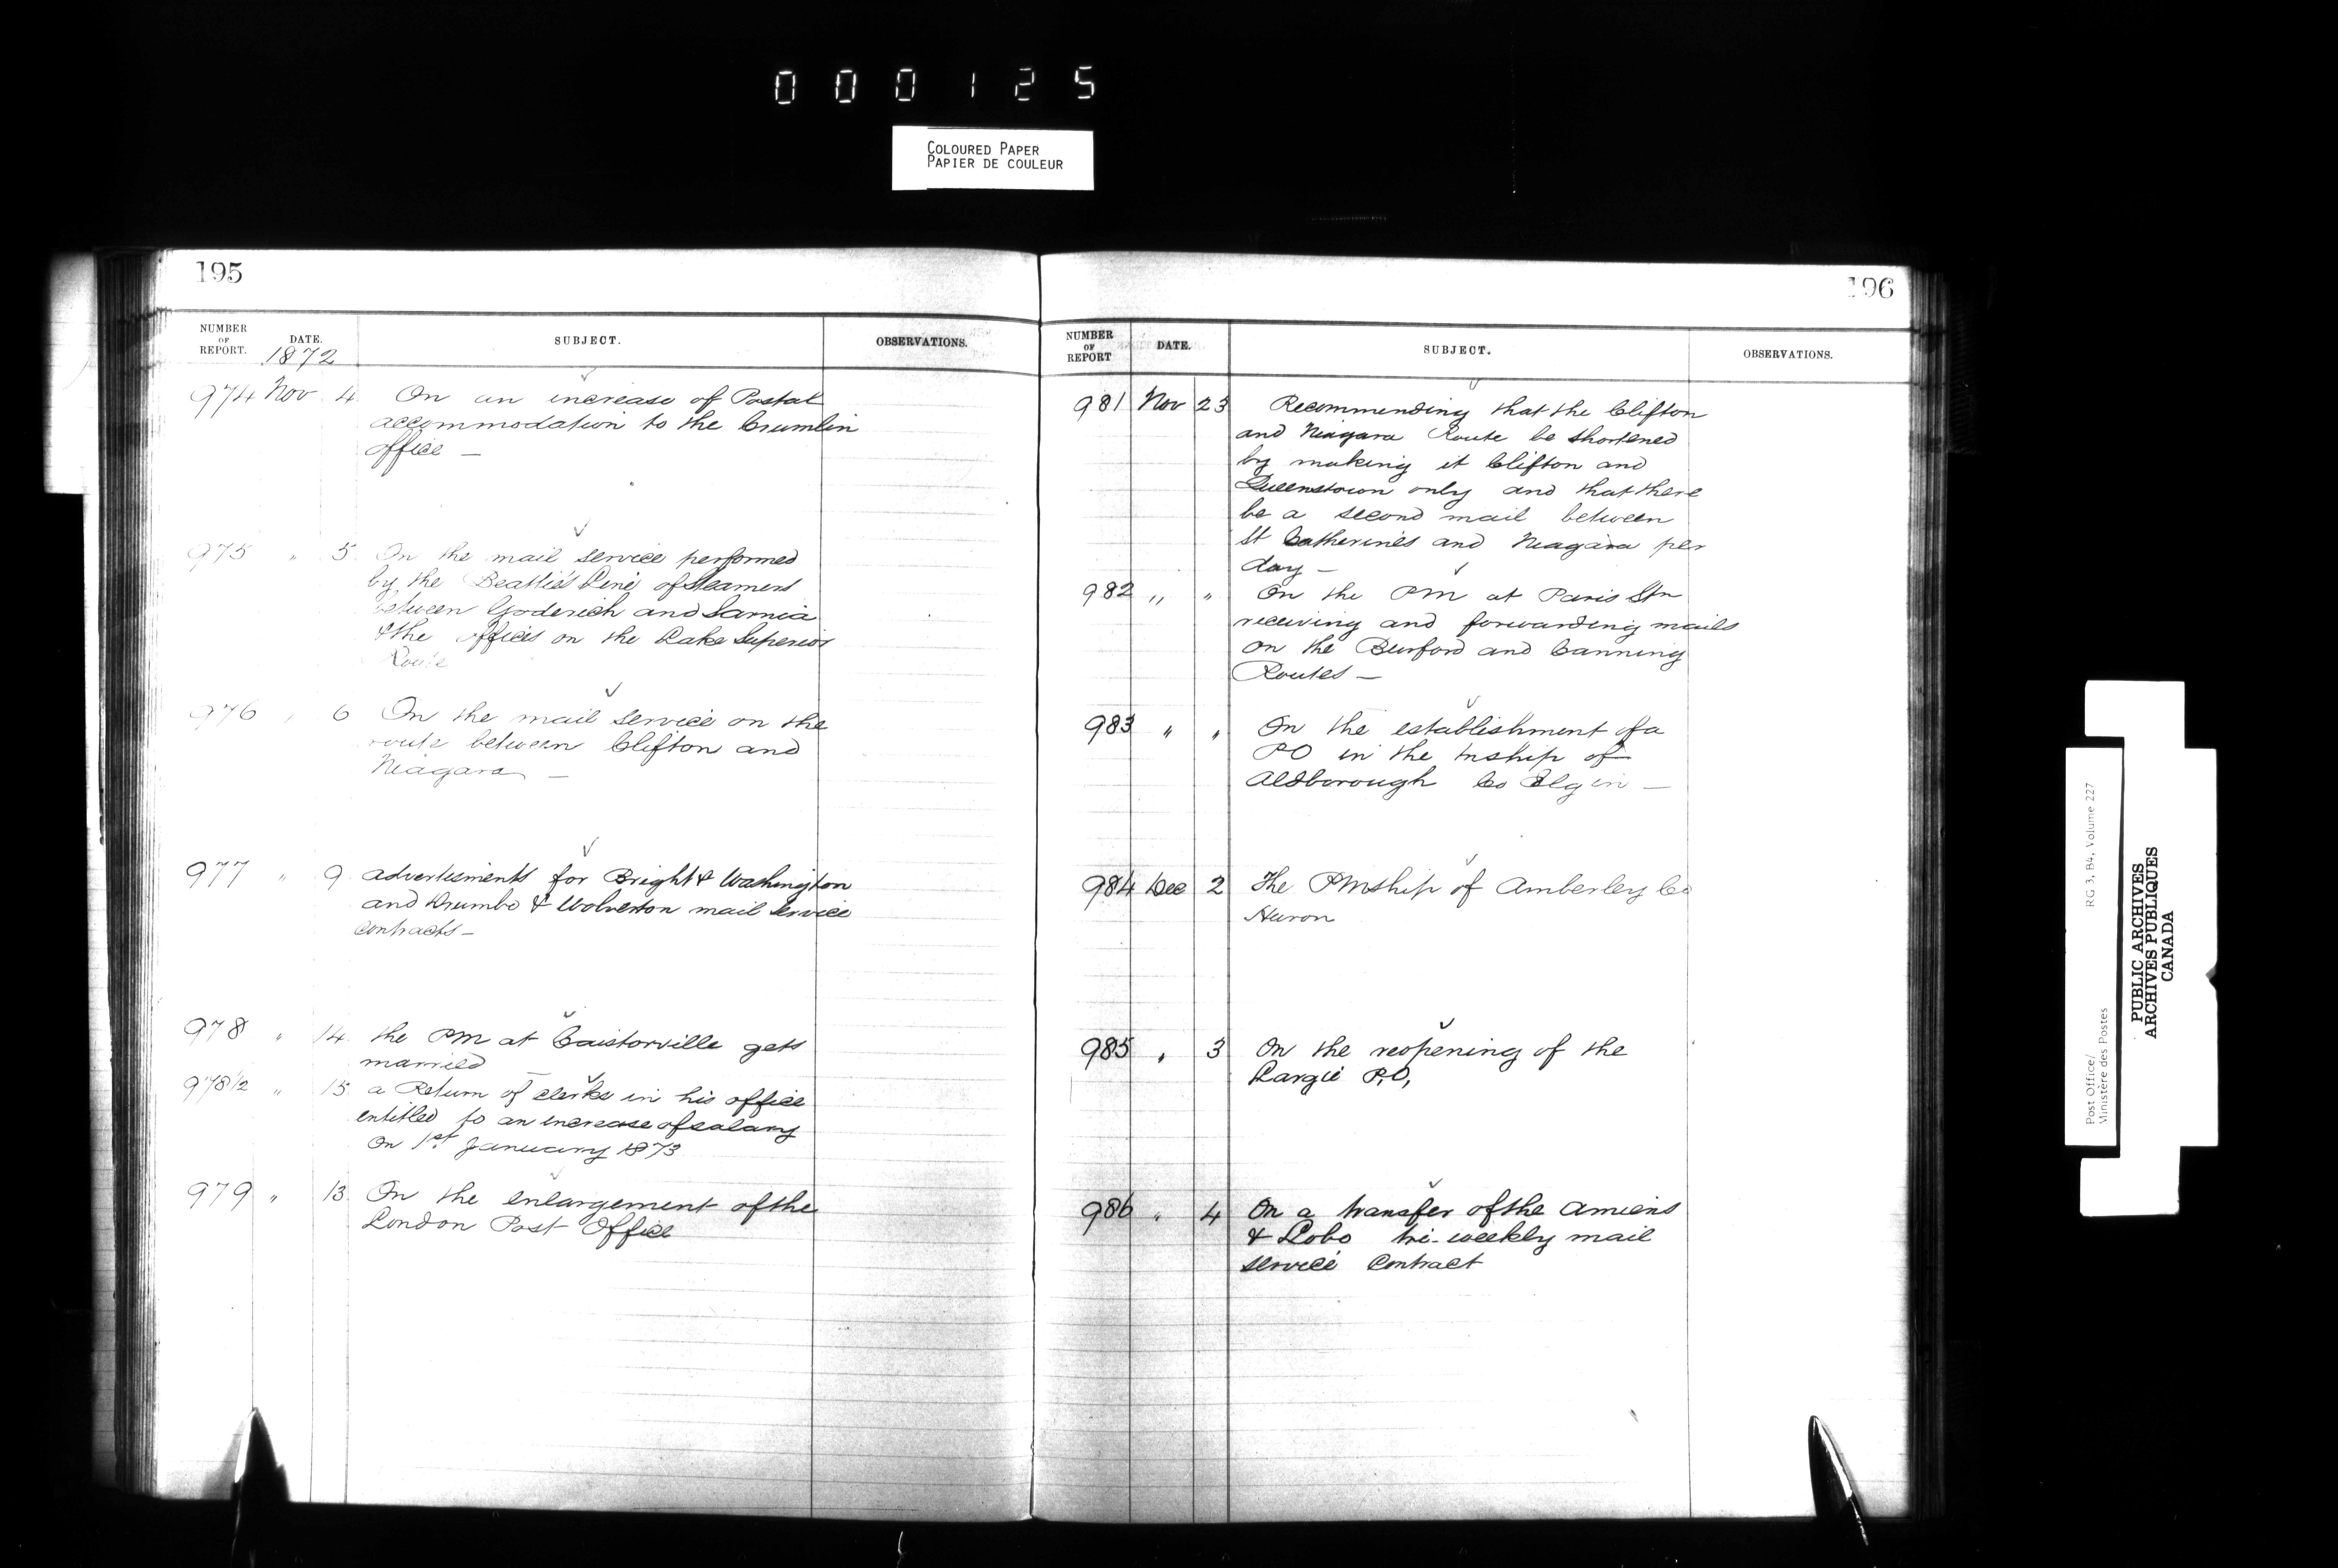 000125
COLOURED PAPER
PAPIER DE COULEUR
195
NUMBER OF REPORT. DATE. SUBJECT. OBSERVATIONS.
1872
974 Nov 4 On an increase of Postal
accommodation to the Crumlin
office —
975 " 5 On the mail service performed
by the Beattie's Line of Steamers
between Goderich and Sarnia
& the offices on the Lake Superior
Route
976 " 6 On the mail service on the
route between Clifton and
Niagara —
977 " 9 advertisments for Bright & Washington
and Drumbo & Wolverton mail service
contracts —
978 " 14 the PM at Caistorville gets
married
978 1/2 " 15 a Return of clerks in his office
entitled to an increase of salary
on 1st January 1873
979 " 13 On the enlargement of the
London Post Office
196
NUMBER OF REPORT DATE. SUBJECT. OBSERVATIONS.
981 Nov 23 Recommending that the Clifton
and Niagara Route be shortened
by making it Clifton and
Queenstown only and that there
be a second mail between
St Catherines and Niagara per
day —
982 " " On the PM at Paris Stn
receiving and forwarding mails
on the Burford and Canning
Routes —
983 " " On the establishment of a
PO in the tnship of
Aldborough Co Elgin —
984 Dec 2 The PMship of Amberley Co
Huron
985 " 3 On the reopening of the
Largie P.O,
986 " 4 On a transfer of the Amiens
& Lobo tri-weekly mail
service contract
Post Office/ RG 3, B4, Volume 227
Ministère des Postes
PUBLIC ARCHIVES
ARCHIVES PUBLIQUES
CANADA